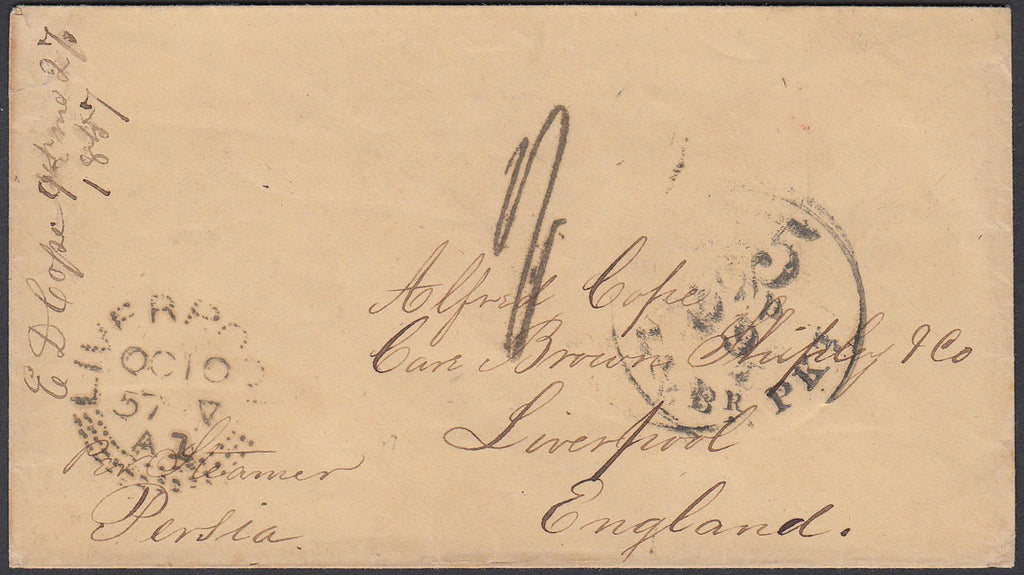 E D Cope 9th mo 27
1857
Alfred Cope
Care Brown Shipley & Co
Liverpool
England.
per Steamer
Persia
LIVERPOOL
OC 10
57
A 1
5
BR PKT